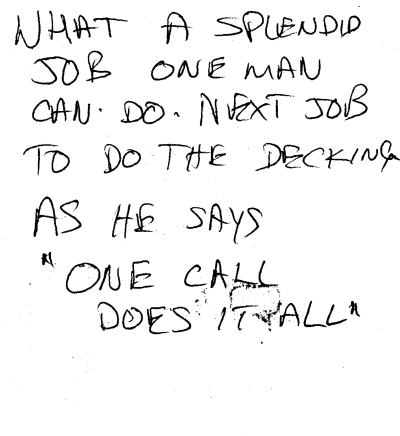 WHAT A SPLENDID
JOB ONE MAN
CAN. DO. NEXT JOB
TO DO THE DECKING
AS HE SAYS
"ONE CALL
DOES IT ALL"